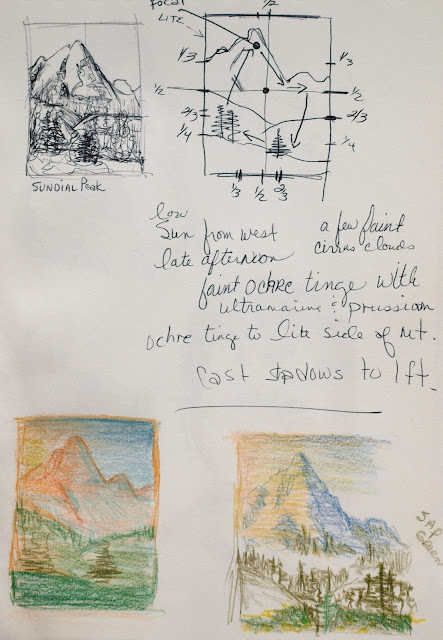 FOCAL
LITE
1/2
1/3
1/3
1/2
1/2
2/3
2/3
1/4
1/4
1/3 1/2 2/3
SUNDIAL Peak
low
Sun from west
late afternoon
a few faint
cirrus clouds
faint OCHRE tinge with
ultramarine & prussian
ochre tinge to lite side of mt.
Cast shadows to lft.
SAP
Green